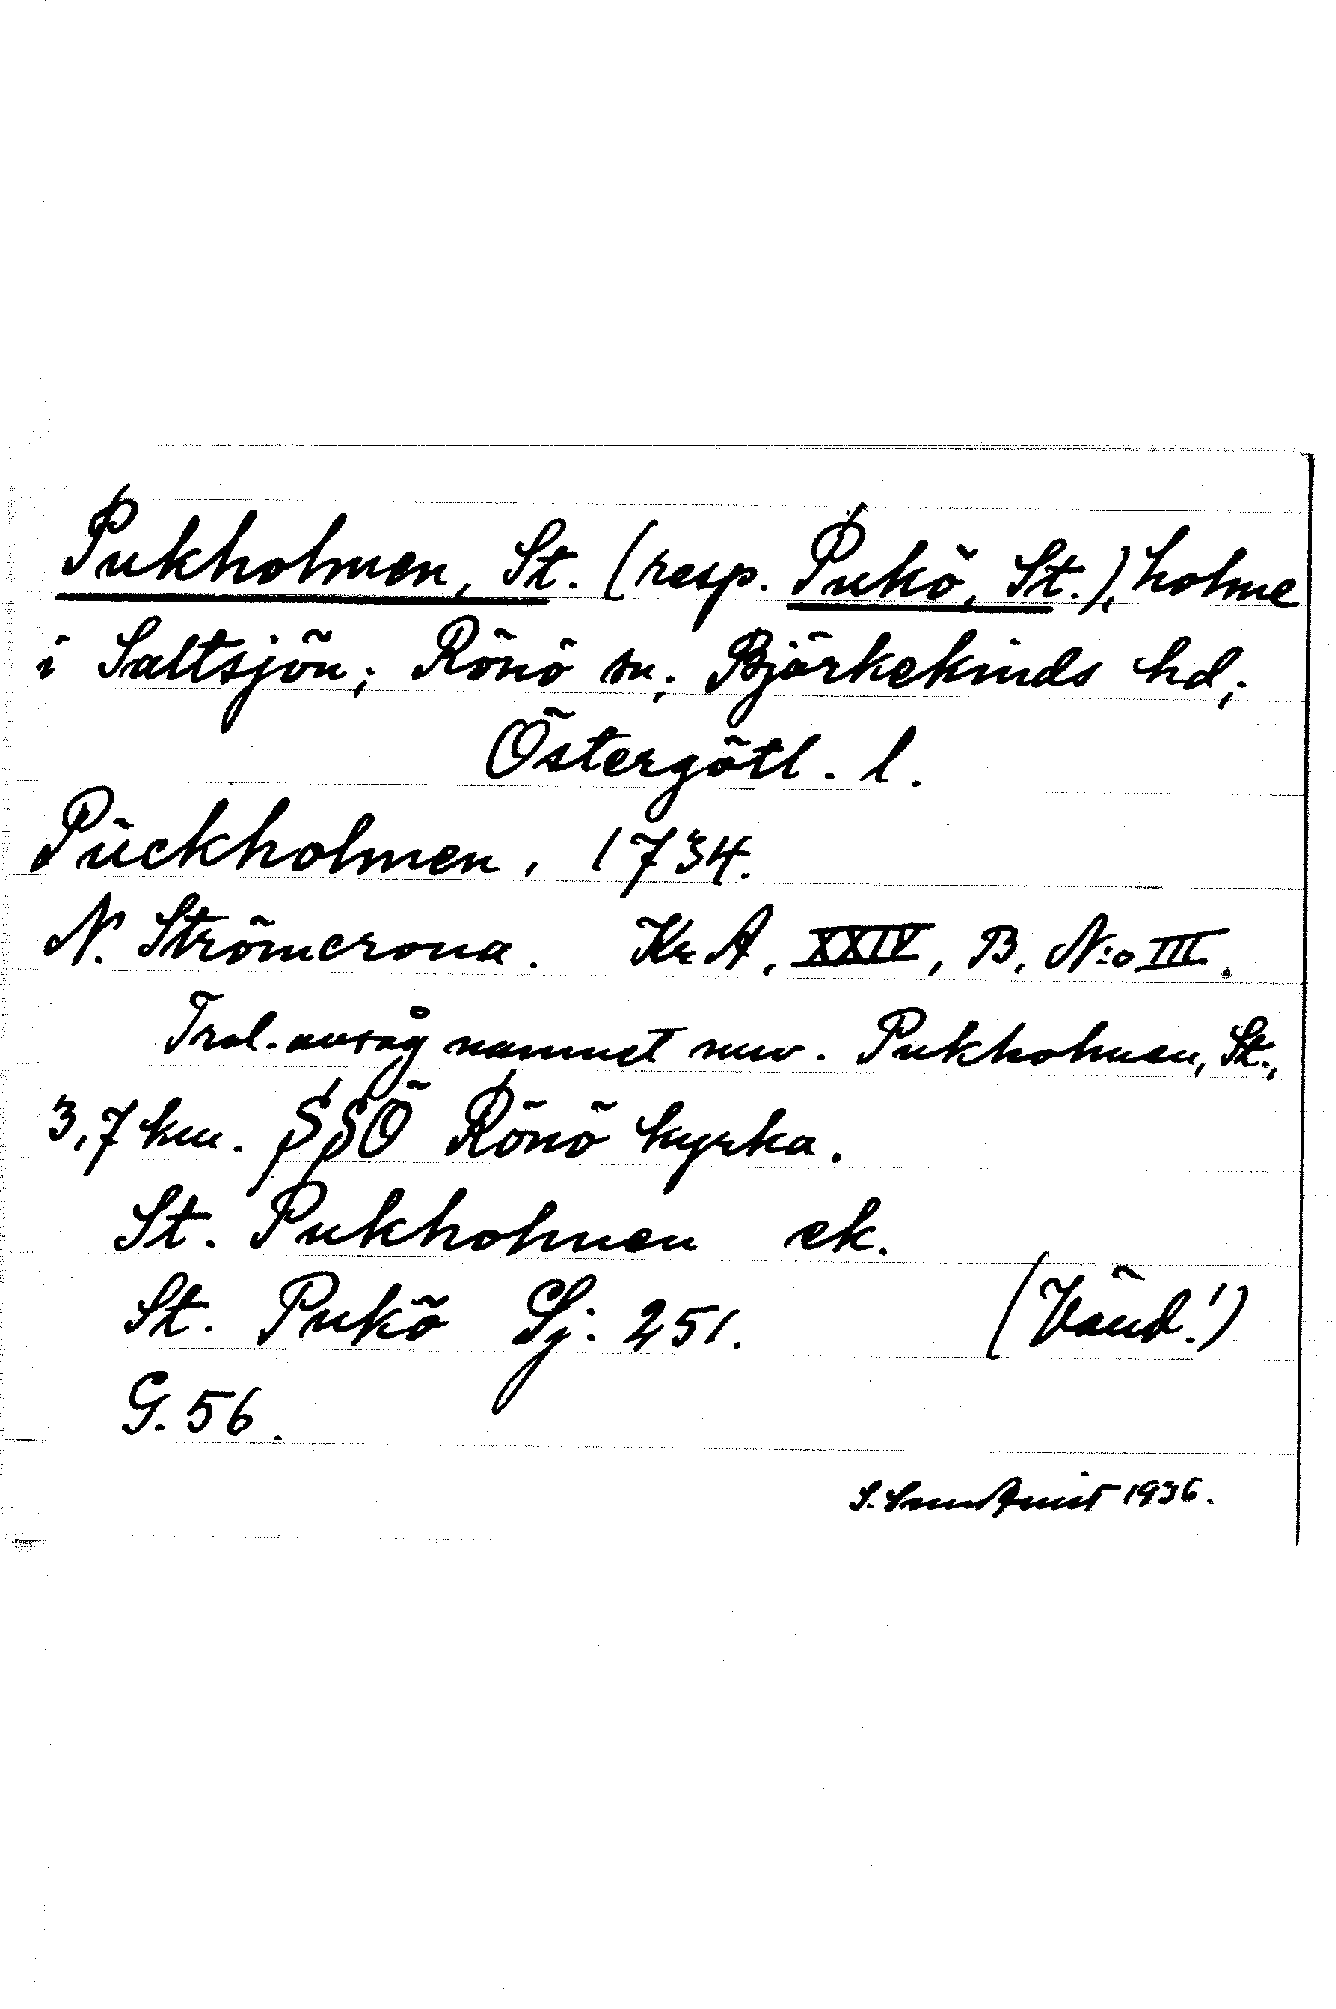 Pukholmen, St. (resp. Pukö, St.), holme
i Saltsjön; Rönö sn; Björkekinds hd;
Östergötl. l.
Pückholmen, 1734.
N. Strömcrona. Kr A, XXIV, B, N:o III.
Trol. avsåg namnet nuv. Pukholmen, St.,
3,7 km. SSÖ Rönö kyrka.
St. Pukholmen ek.
St. Pukö Sj. 251. (Vänd!)
G. 56.
1936.